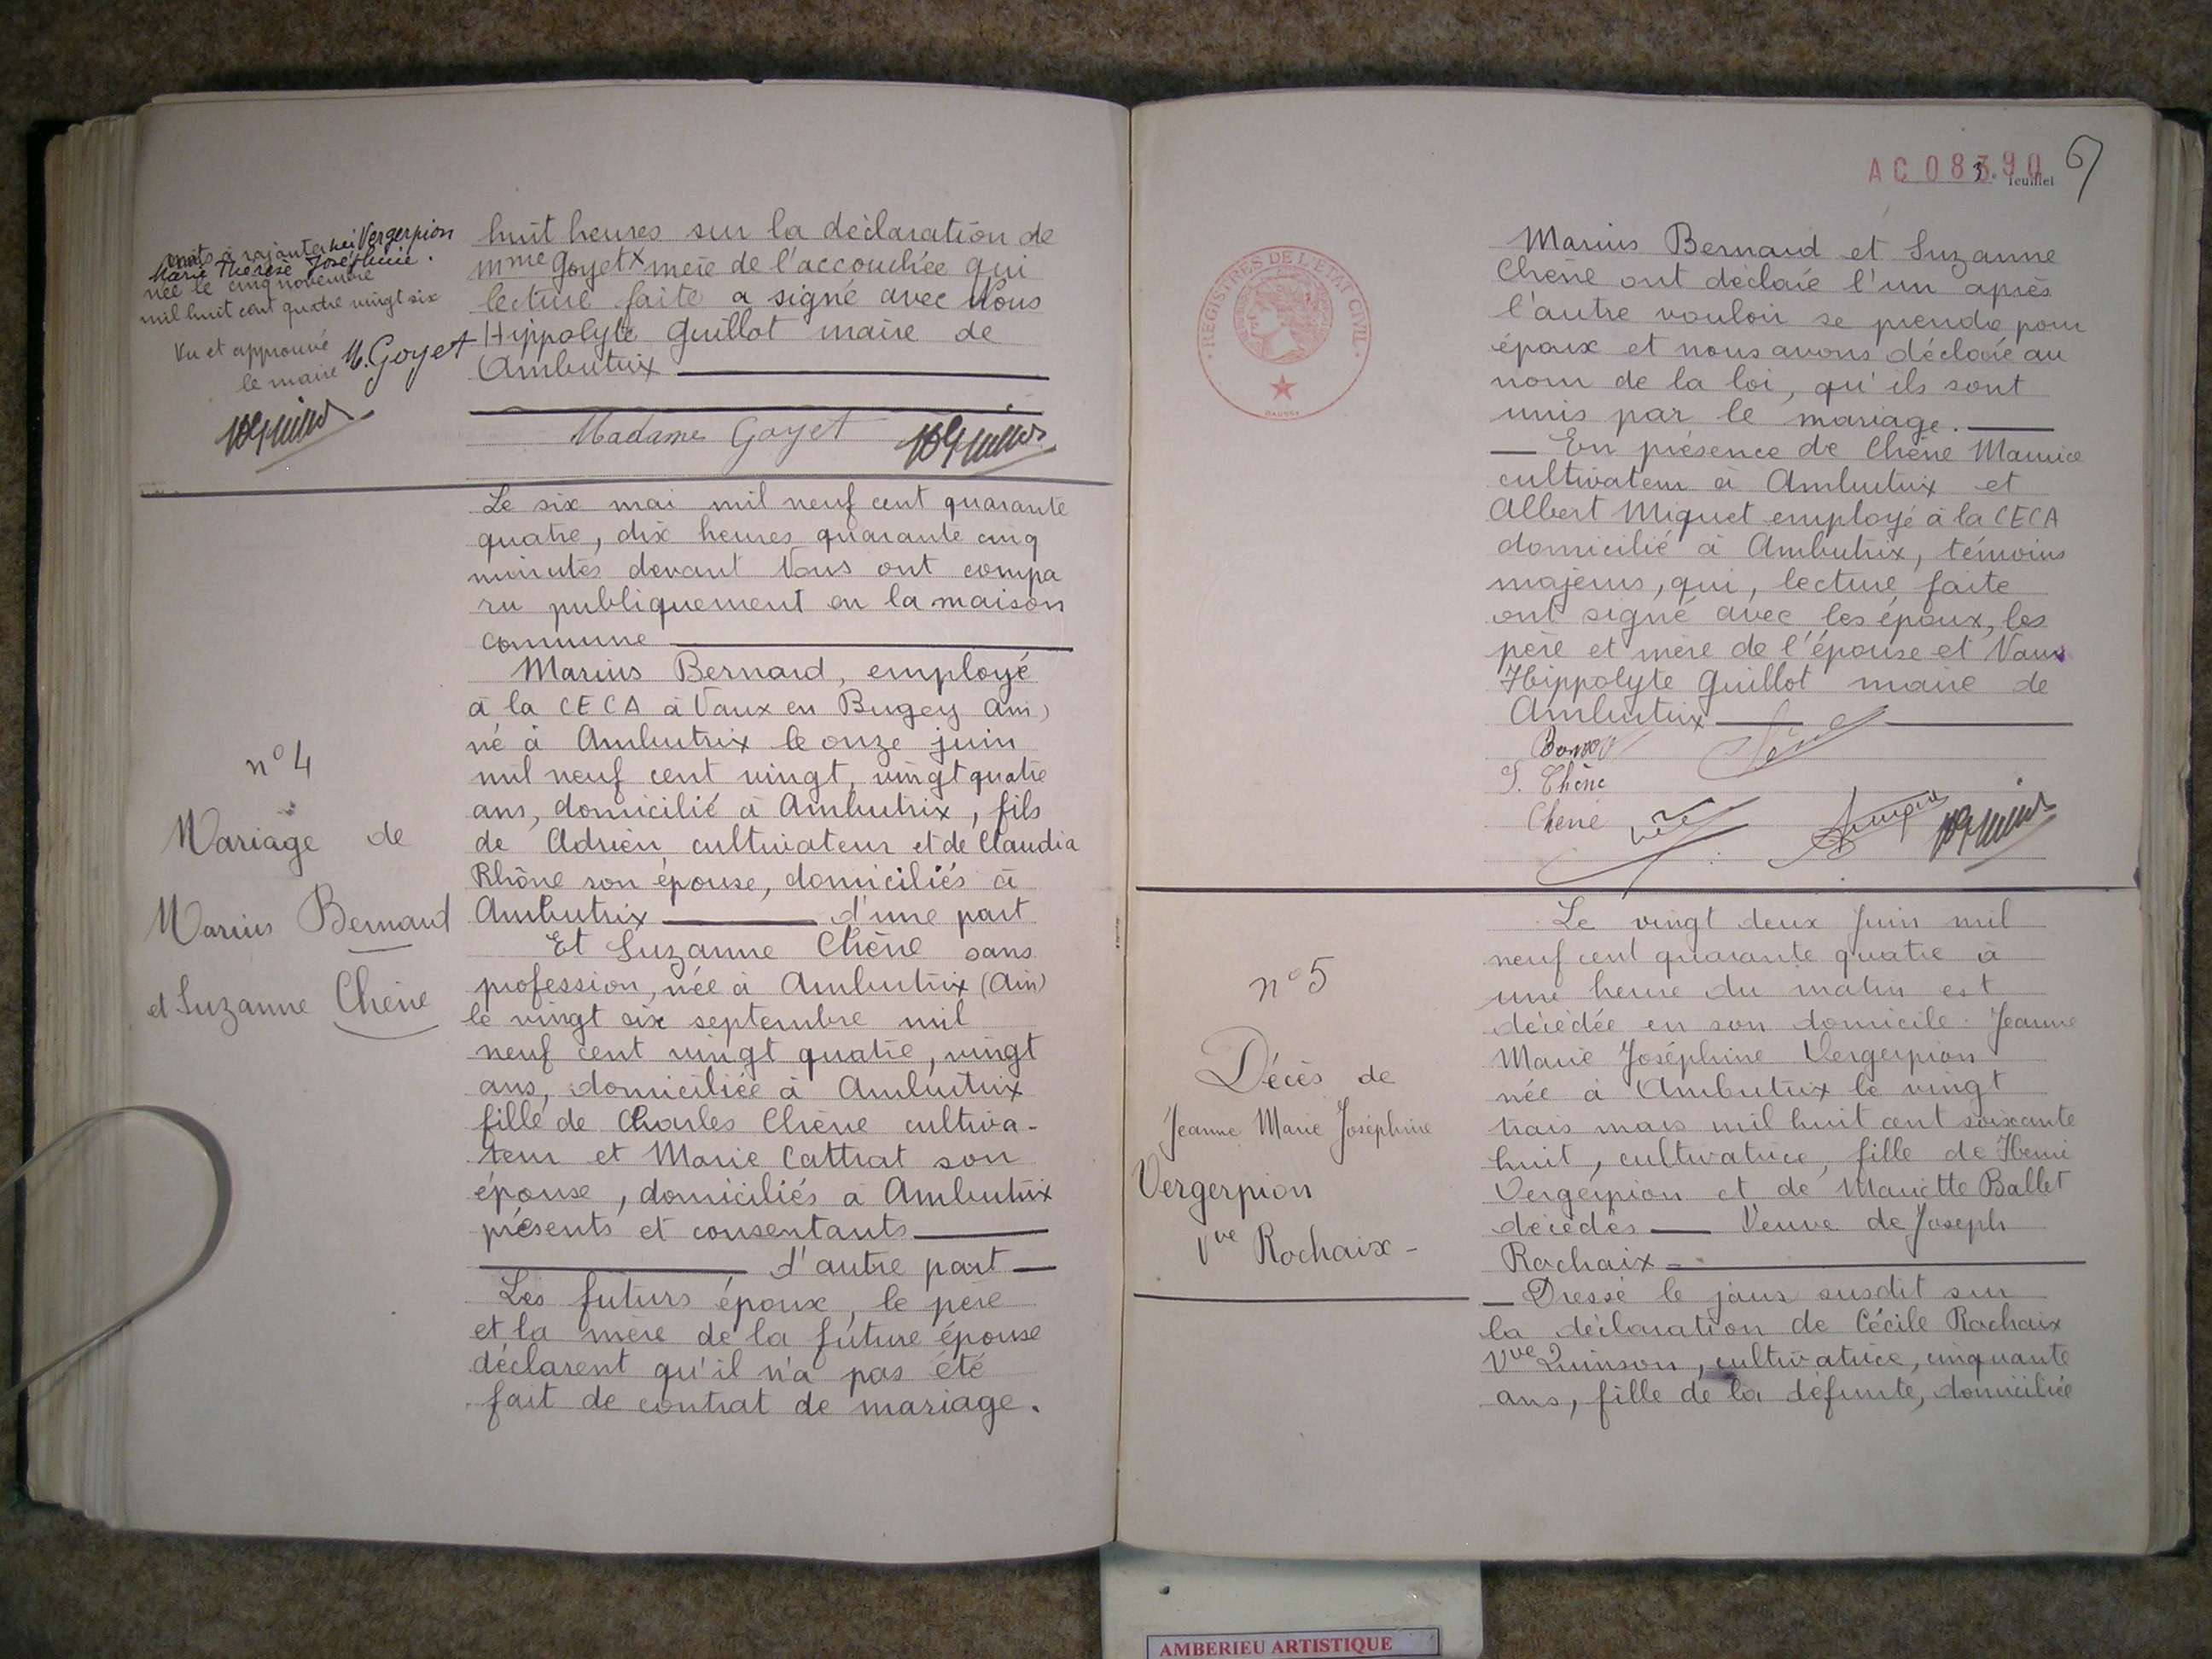 mots à rajouter née Vergerpion
Marie Thérèse Joséphine.
née le cinq novembre
mil huit cent quatre vingt six
Vu et approuvé
le maire
M. Goyet
huit heures sur la déclaration de
Mme Goyet x mère de l'accouchée qui
lecture faite a signé avec Nous
Hippolyte Guillot maire de
Ambutrix
Madame Goyet
n° 4
Mariage de
Marius Bernard
et Suzanne Chêne
Le six mai mil neuf cent quarante
quatre, dix heures quarante cinq
minutes devant Nous ont compa
ru publiquement en la maison
commune
Marius Bernard, employé
à la CECA à Vaux en Bugey Ain)
né à Ambutrix le onze juin
mil neuf cent vingt, vingt quatre
ans, domicilié à Ambutrix, fils
de Adrien, cultivateur et de Claudia
Rhône son épouse, domiciliés à
Ambutrix d'une part
Et Suzanne Chêne sans
profession, née à Ambutrix (Ain)
le vingt six septembre mil
neuf cent vingt quatre, vingt
ans, domiciliée à Ambutrix
fille de Charles Chêne cultiva-
teur et Marie Cattrat son
épouse, domiciliés à Ambutrix
présents et consentants
d'autre part
Les futurs époux, le père
et la mère de la future épouse
déclarent qu'il n'a pas été
fait de contrat de mariage.
AC 08390
3e feuillet
REGISTRES DE L'ETAT CIVIL
Marius Bernard et Suzanne
Chêne ont déclaré l'un après
l'autre vouloir se prendre pour
époux et nous avons déclaré au
nom de la loi, qu'ils sont
unis par le mariage.
En présence de Chêne Maurice
cultivateur à Ambutrix et
Albert Miguet employé à la CECA
domicilié à Ambutrix, témoins
majeurs, qui, lecture faite
ont signé avec les époux, les
père et mère de l'épouse et Nous
Hippolyte Guillot maire de
Ambutrix
S. Chêne
Chêne
n° 5
Décès de
Jeanne Marie Joséphine
Vergerpion
Vve Rochaix -
Le vingt deux Juin mil
neuf cent quarante quatre à
une heure du matin est
décédée en son domicile Jeanne
Marie Joséphine Vergerpion
née à Ambutrix le vingt
trois mars mil huit cent soixante
huit, cultivatrice, fille de Henri
Vergerpion et de Mariette Ballet
décédés Veuve de Joseph
Rochaix
Dressé le jour susdit sur
la déclaration de Cécile Rochaix
Vve Quinson, cultivatrice, cinquante
ans, fille de la défunte, domiciliée
AMBERIEU ARTISTIQUE